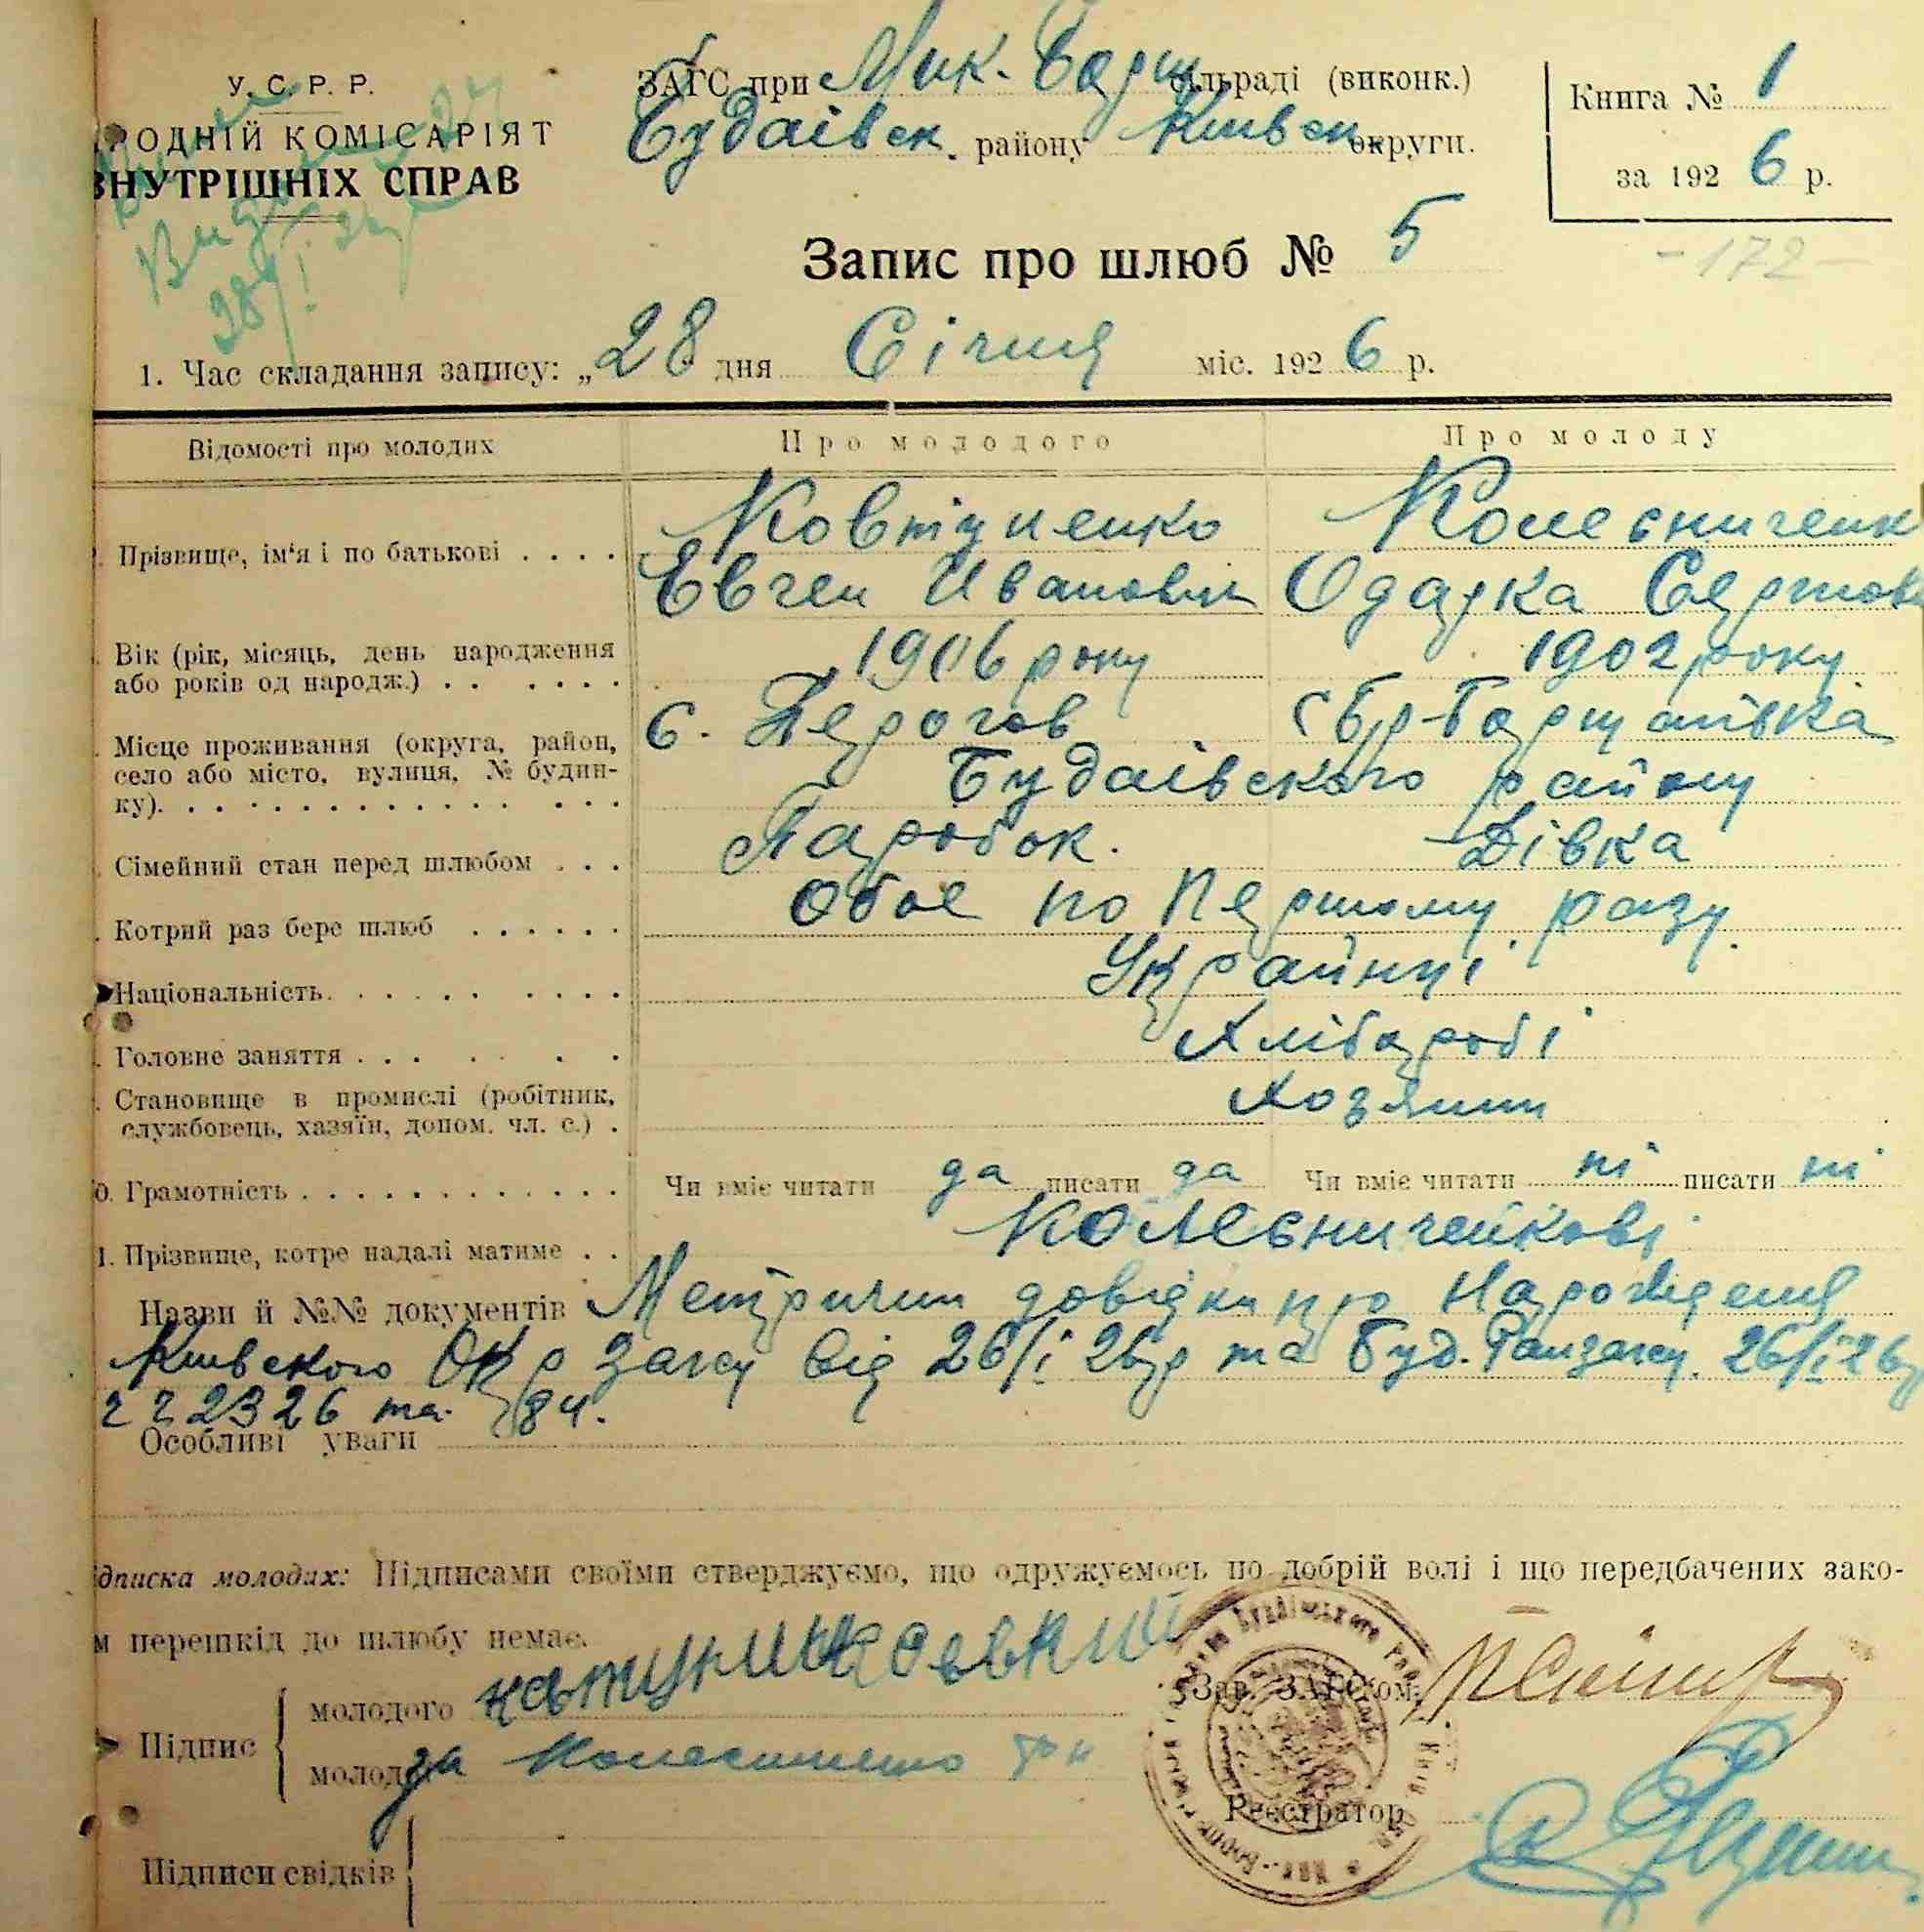 У. С. Р. Р.
РОДНІЙ КОМІСАРІЯТ
ВНУТРІШНІХ СПРАВ
ЗАГС при Мик. Борщ. сільраді (виконк.)
Будаівськ. району Київськ округи.
Книга № 1
за 1926 р.
Запис про шлюб № 5
- 172 -
1. Час складання запису: „28 дня Січня міс. 1926 р.
Відомості про молодих Про молодого Про молоду
Ковтуненко Колесниченк
Прізвище, ім'я і по батькові . . . .
Евген Иванович Одарка Сергіовн
Вік (рік, місяць, день народження 1906 року 1902 року
або років од народж.) . . . . . .
с. Перогов с Бр-Борщагівка
Місце проживання (округа, район,
село або місто, вулиця, № будин- Будаівського району
ку). . . . . . . . . . . . . . .
Сімейний стан перед шлюбом . . . Паробок. Дівка
Котрий раз бере шлюб . . . . . . Обое по Першому разу.
Національність. . . . . . . . . Украйнці
Головне заняття . . . . . . Хлібороби
Становище в промислі (робітник, Хозяини
службовець, хазяїн, допом. чл. с.) .
0. Грамотність . . . . . . . . . . . . Чи вміє читати да писати да Чи вміє читати ні писати ні
1. Прізвище, котре надалі матиме . . Колесниченкові
Назви й №№ документів Метричні довідки про Народженя
Київського Окр Загсу від 26/I 26р та Буд. Райзагсу. 26/I 26р
ч ч 2326 та 84.
Особливі уваги
ідписка молодих: Підписами своїми стверджуємо, що одружуємось по добрій волі і що передбачених зако-
м перешкід до шлюбу немає.
молодого
Підпис
молод за Колесниченко
Зав. ЗАГС'ом
Реєстратор
Підписи свідків